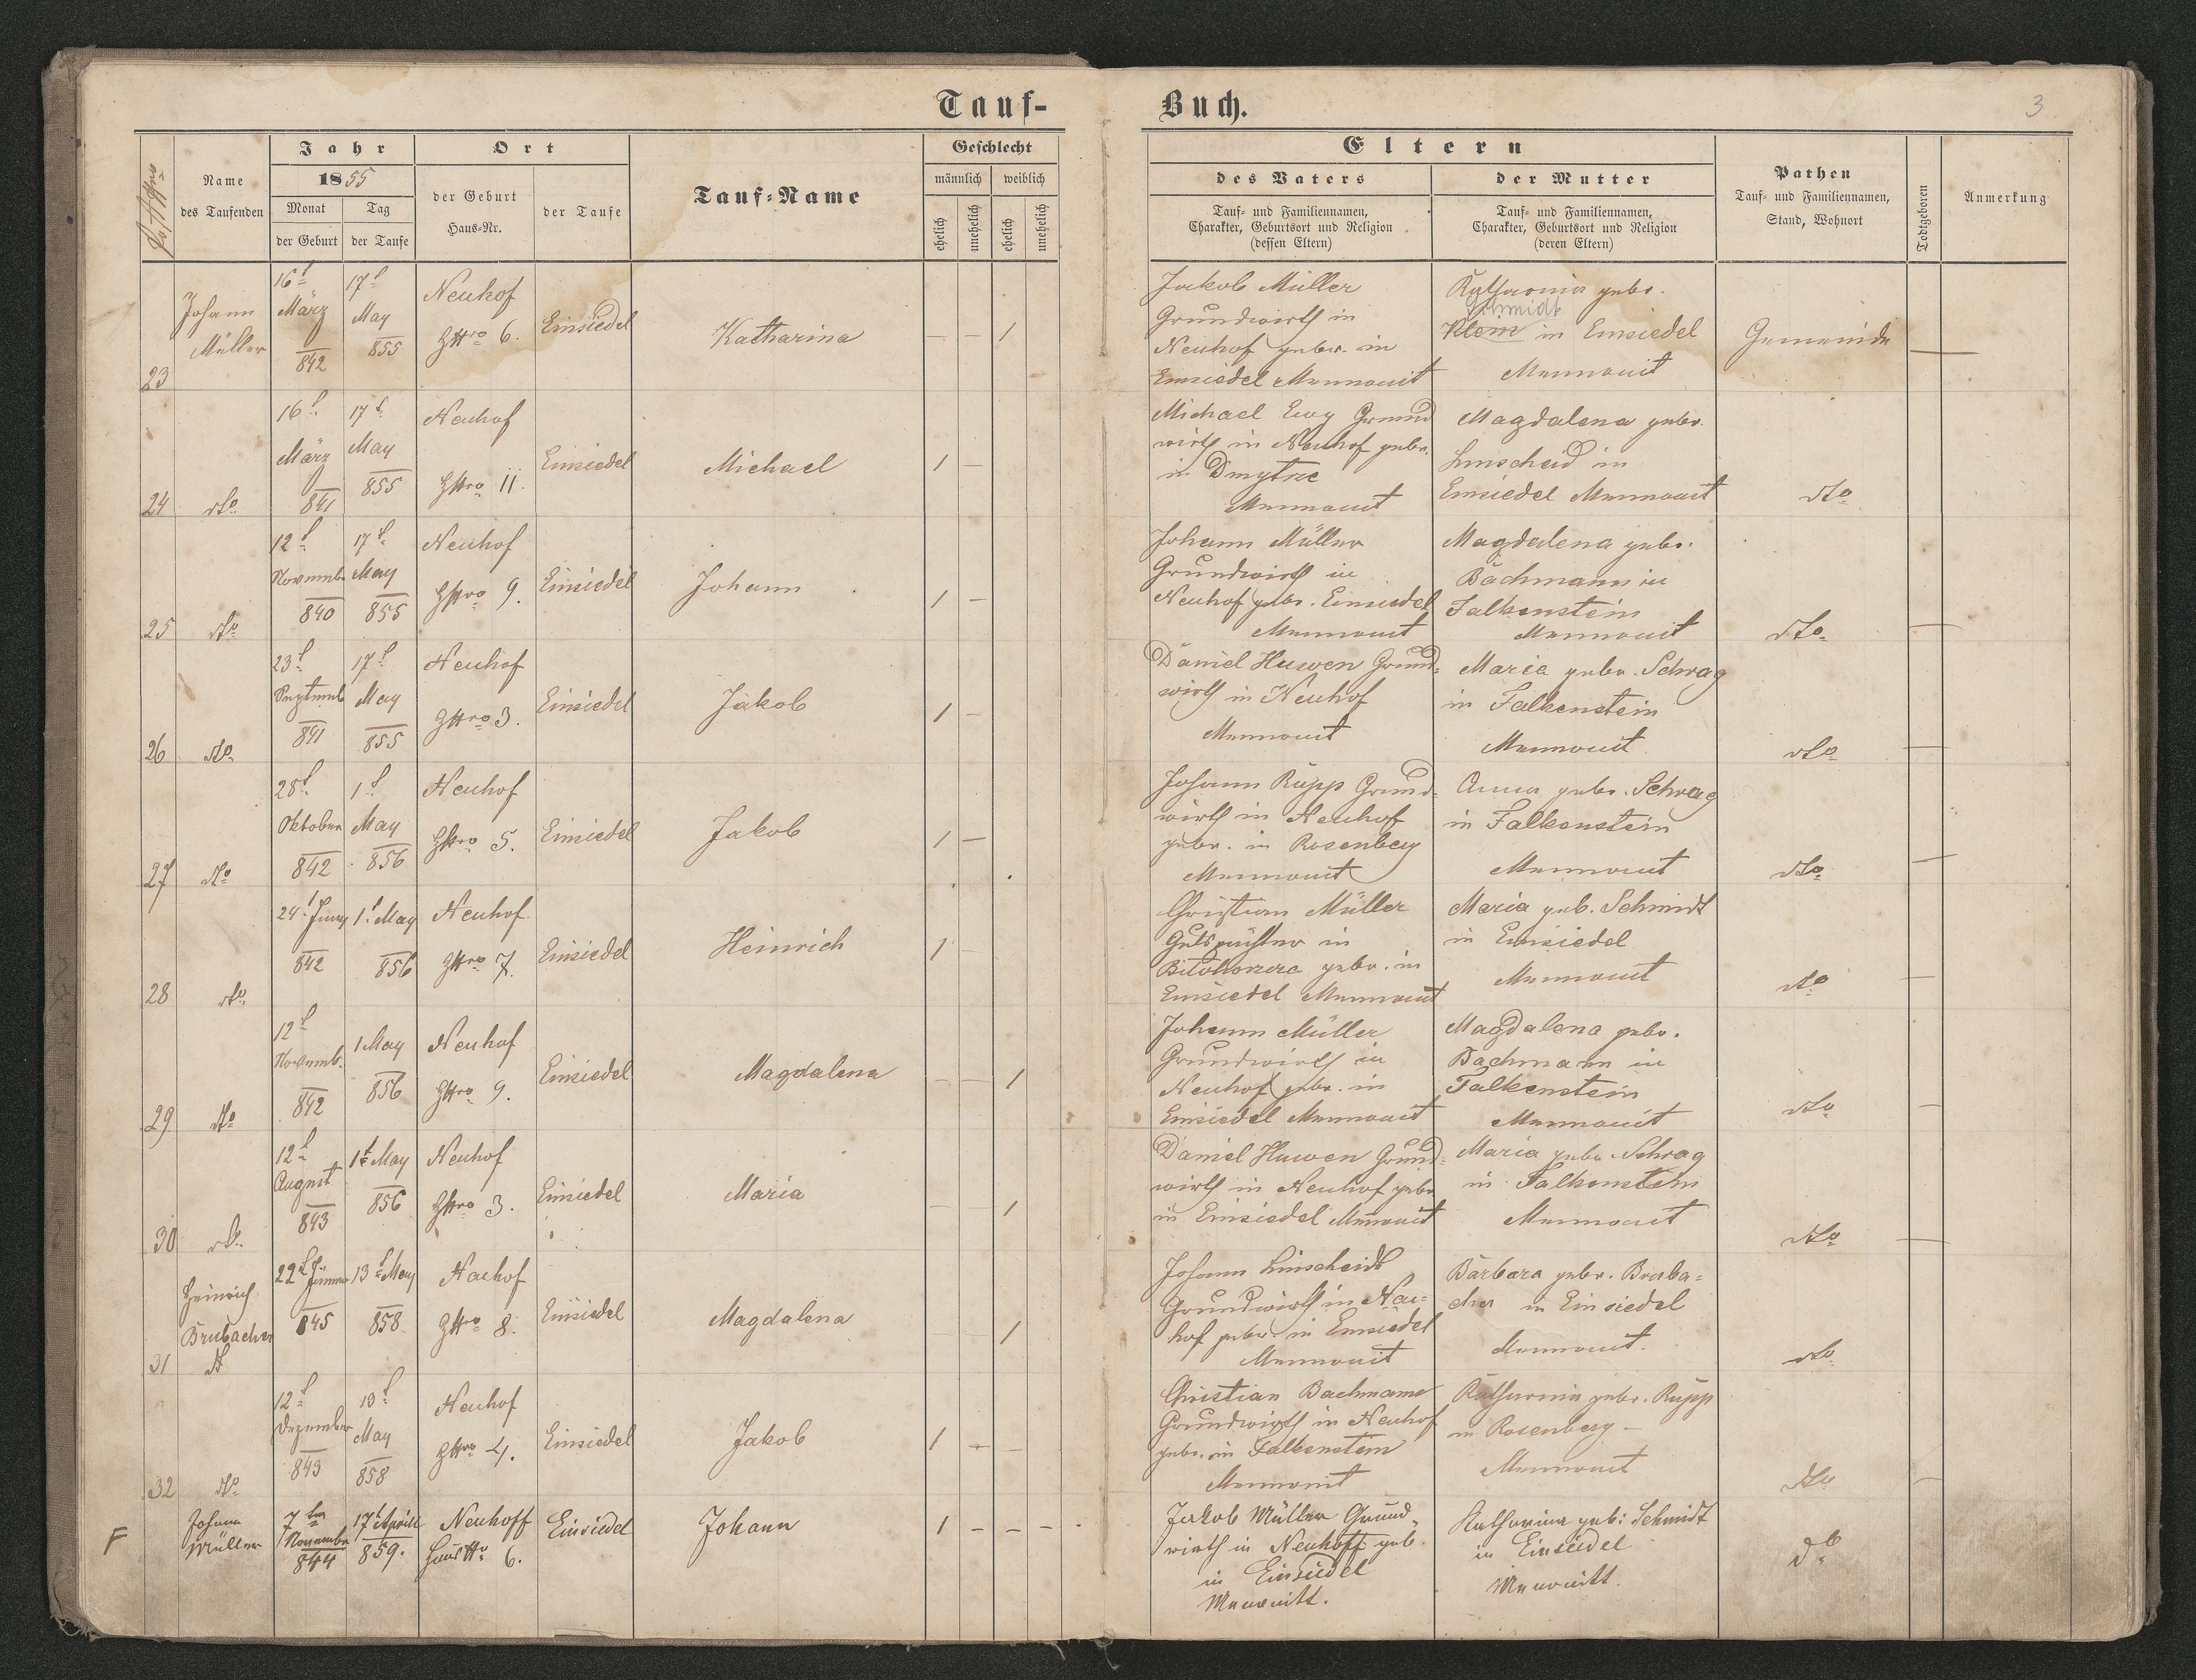 Tauf-
Buch.
3
Name
des Taufenden
Jahr
1855
Monat
der Geburt
Tag
der Taufe
Ort
der Geburt
Haus-Nr.
der Taufe
Tauf-Name
Geschlecht
männlich
weiblich
ehelich
unehelich
ehelich
unehelich
Eltern
des Vaters
Tauf- und Familiennamen,
Charakter, Geburtsort und Religion
(dessen Eltern)
der Mutter
Tauf- und Familiennamen,
Charakter, Geburtsort und Religion
(deren Eltern)
Pathen
Tauf- und Familiennamen,
Stand, Wohnort
Todtgeboren
Anmerkung
23
Johann
Müller
16t
März
842
17t
May
855
Neuhof
HNro 6.
Einsiedel
Katharina
— — 1
Jakob Müller
Grundwirth in
Neuhof gebr. in
Einsiedel Mennonit
Katharina gebr.
Schmidt
Klein in Einsiedel
Mennonit
Gemeinde
—
24
dto
16t
März
841
17t
May
855
Neuhof
HNro 11.
Einsiedel
Michael
1 —
Michael Ewy Grund
wirth in Neuhof gebr.
in Dmytrie
Mennonit
Magdalena gebr.
Linscheid in
Einsiedel Mennonit
dto
25
dto
12t
Novemb
840
17t
May
855
Neuhof
HNro 9.
Einsiedel
Johann
1 —
Johann Müller
Grundwirth in
Neuhof gebr. Einsiedel
Mennonit
Magdalena gebr.
Bachmann in
Falkenstein
Mennonit
dto
—
26
dto
23t
Septemb
841
17t
May
855
Neuhof
HNro 3.
Einsiedel
Jakob
1 —
Daniel Huwen Grund-
wirth in Neuhof
Mennonit
Maria gebr. Schrag
in Falkenstein
Mennonit
dto
—
27
dto
28t
Oktober
842
1t
May
856
Neuhof
HNro 5.
Einsiedel
Jakob
1 —
Johann Rupp Grund-
wirth in Neuhof
gebr. in Rosenberg
Mennonit
Anna gebr. Schrag
in Falkenstein
Mennonit
dto
—
28
dto
24t Juny
842
1t May
856
Neuhof
HNro 7.
Einsiedel
Heinrich
1 —
Christian Müller
Gutspächter in
gebr. in
Einsiedel Mennonit
Maria geb. Schmidt
in Einsiedel
Mennonit
dto
—
29
dto
12t
Novemb.
842
1 May
856
Neuhof
HNro 9.
Einsiedel
Magdalena
— — 1
Johann Müller
Grundwirth in
Neuhof gebr. in
Einsiedel Mennonit
Magdalena gebr.
Bachmann in
Falkenstein
Mennonit
dto
—
30
dto
12t
August
843
1t May
856
Neuhof
HNro 3.
Einsiedel
Maria
— — 1
Daniel Huwen Grund-
wirth in Neuhof gebr
in Einsiedel Mennonit
Maria gebr. Schrag
in Falkenstein
Mennonit
dto
—
31
Heinrich
Brubacher
22t
845
13t May
858
Neuhof
HNro 8.
Einsiedel
Magdalena
1
Johann Linscheidt
Grundwirth in Neu-
hof gebr. in Einsiedel
Mennonit
Barbara gebr. Bruba-
cher in Einsiedel
Mennonit.
dto
32
dto
12t
Dezember
843
13t
May
858
Neuhof
HNro 4.
Einsiedel
Jakob
1 — —
Christian Bachmann
Grundwirth in Neuhof
gebr. in Falkenstein
Mennonit
Katharina gebr. Rupp
in Rosenberg —
Mennonit
dto
—
F
Johann
Müller
7ten
November
844
17t Aprill
859.
Neuhoff
Haus No 6.
Einsiedel
Johann
1 - - -
Jakob Müller Grund-
wirth in Neuhoff geb.
in Einsiedel
Mennonitt.
Katharina geb: Schmidt
in Einsiedel
Mennonitt.
dto